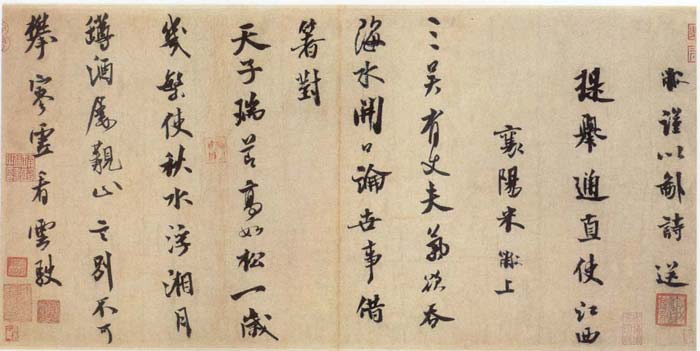 黻謹以鄙詩送
提舉通直使江西
襄陽米黻上
三吳有丈夫氣欲吞
海水開口論世事借
箸對
天子瑞節高如松一歲
幾繁使秋水浮湘月
罇酒屢止言別不可
攀寒雲看雲駛